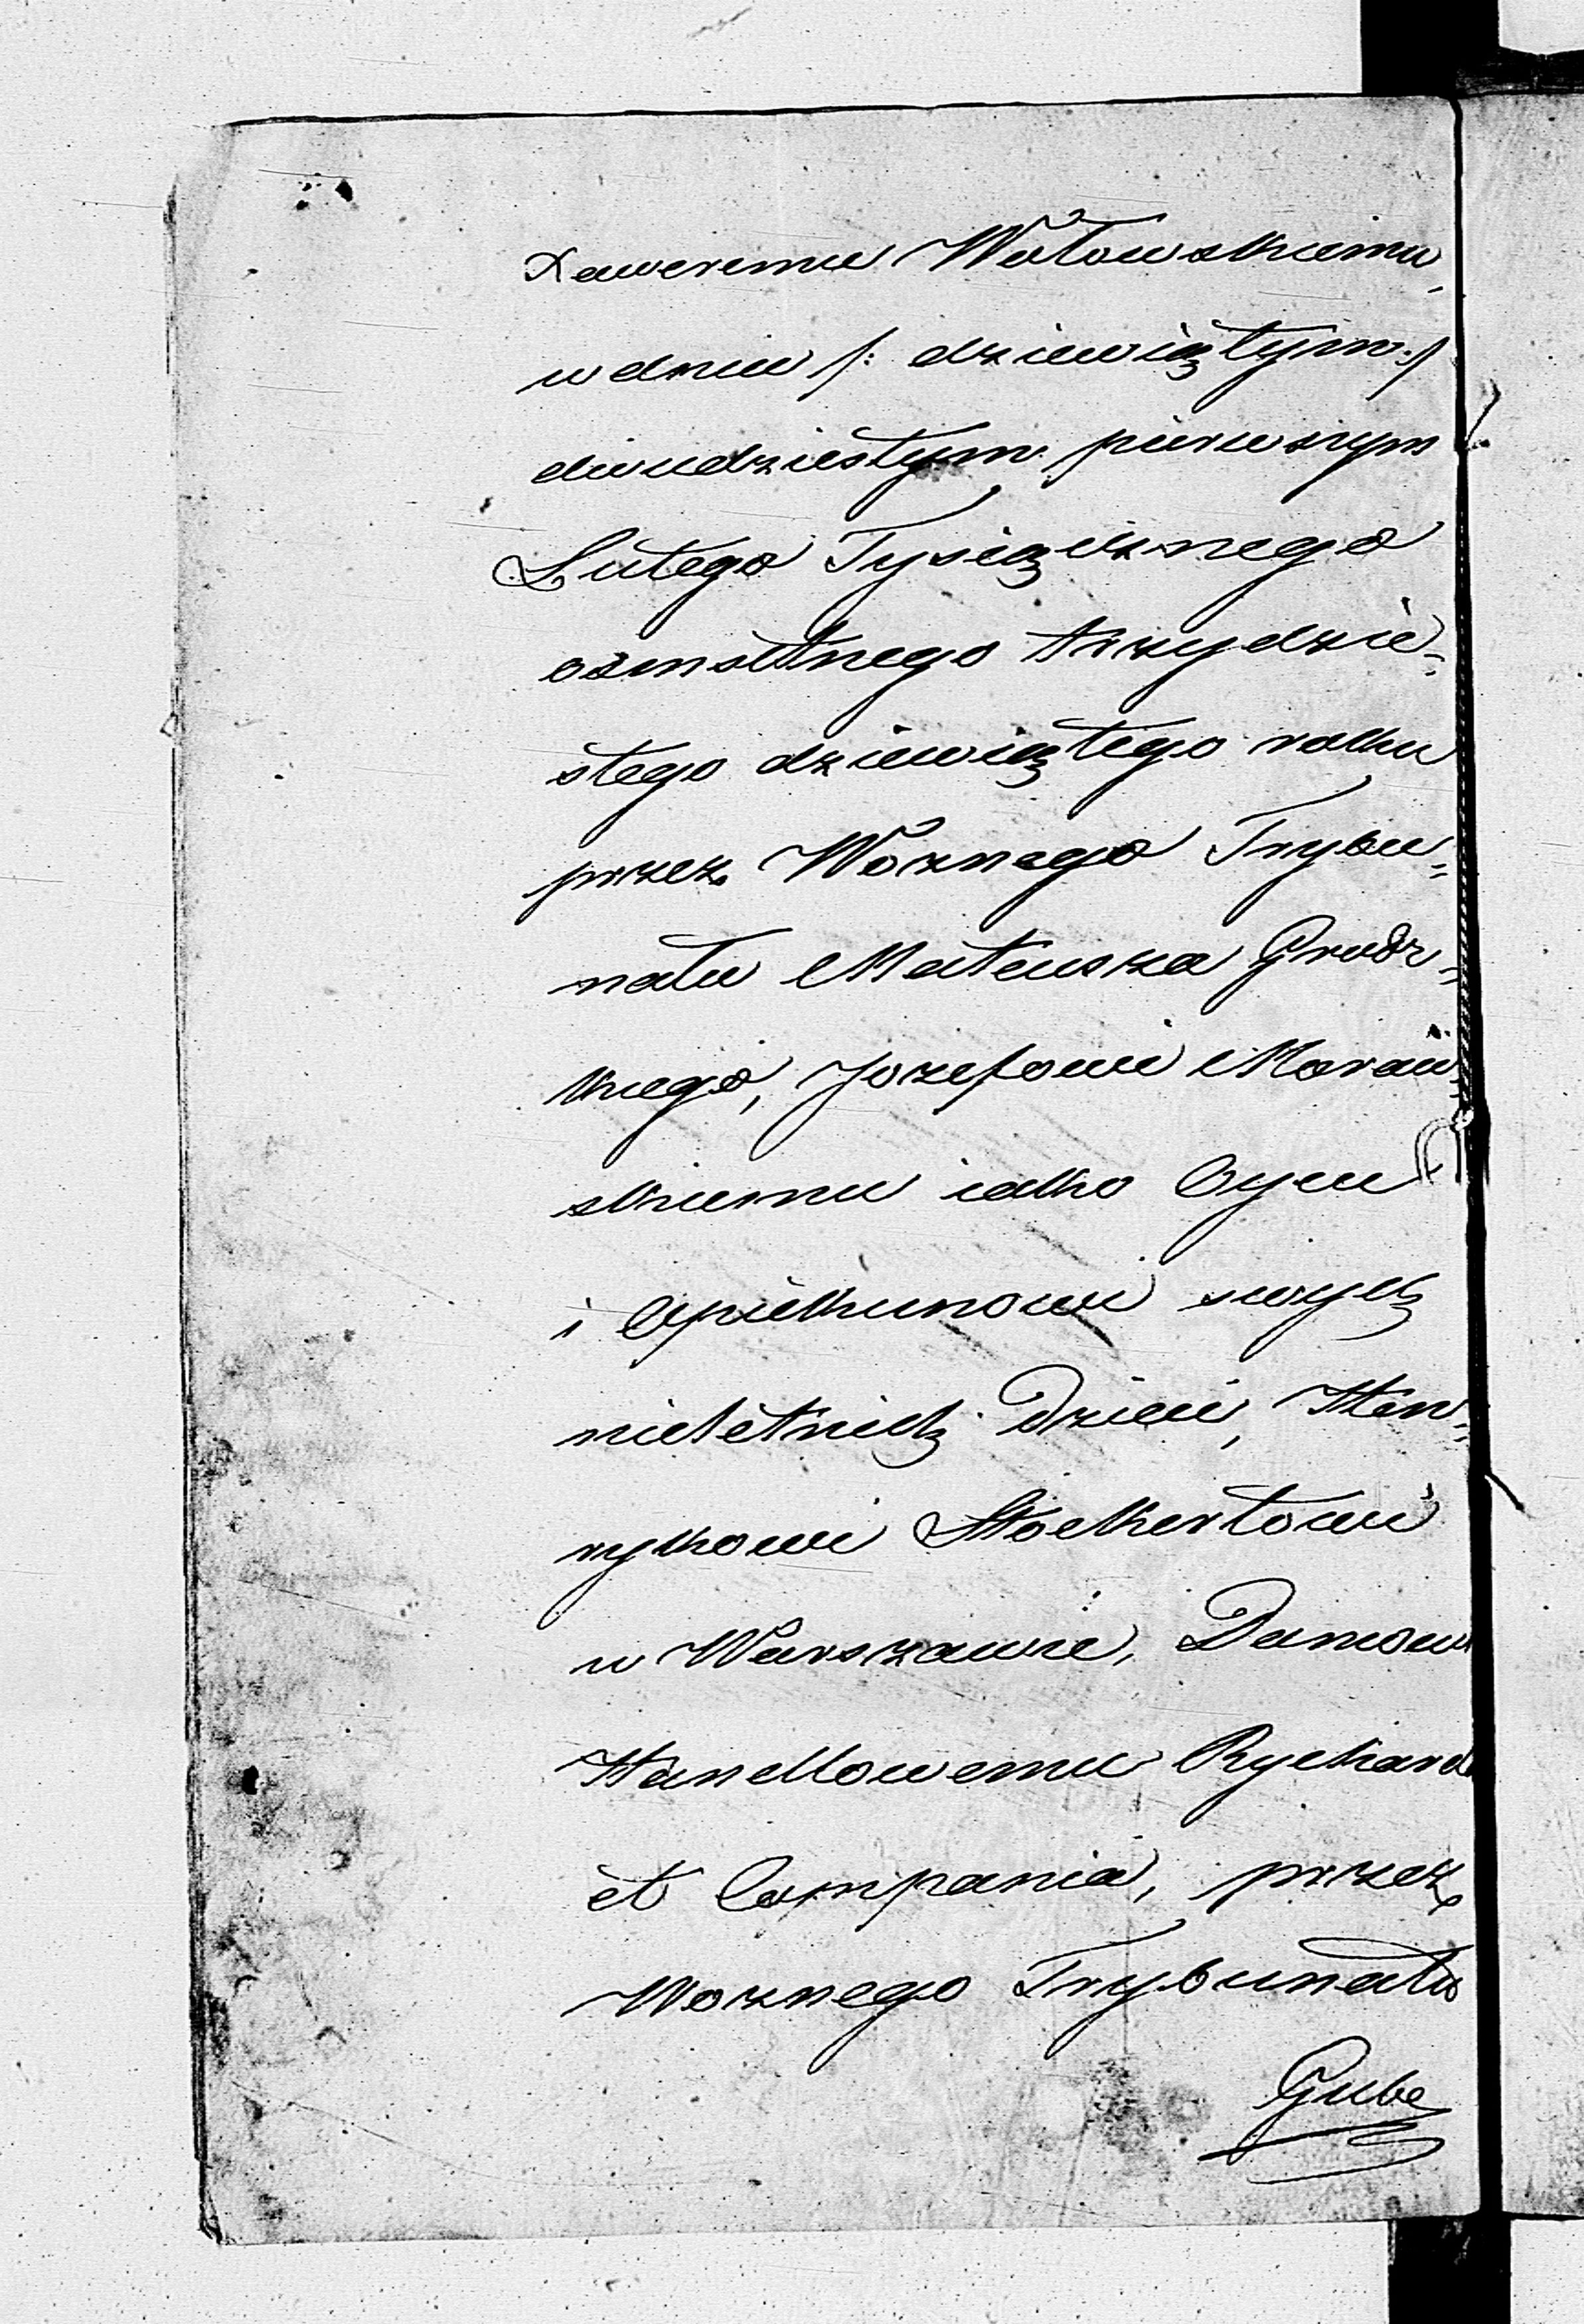 Xaweremu Wołowskiemu
w dniu /: dziewiątym :/
dwudziestym pierwszym
Lutego Tysiącznego
ośmsetnego trzydzie=
stego dziewiątego roku
przez Woznego Trybu=
nału Mateusza Grudz=
kiego, Jozefowi Moraw
skiemu iako Oycu
i Opiekunowi swych
nieletnich Dzieci, Hen=
rykowi Stockertowi
w Warszawie, Domowi
Handlowemu Rychard
et Compania, przez
Woznego Trybunału
Gube